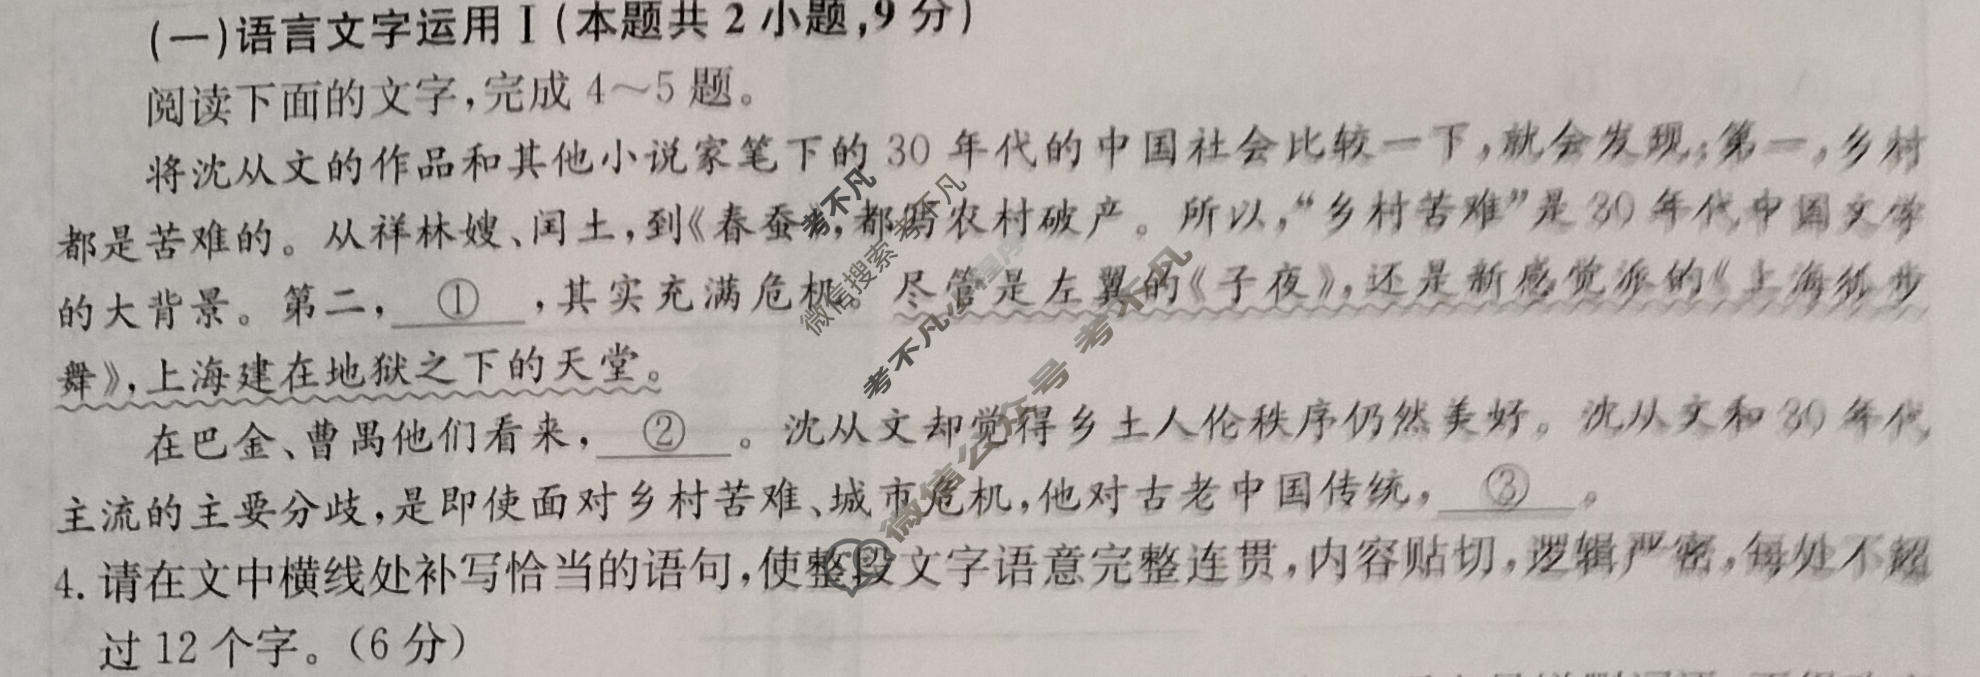 (一)语言文字运用Ⅰ(本题共2小题,9分)
阅读下面的文字,完成4～5题。
将沈从文的作品和其他小说家笔下的30年代的中国社会比较一下,就会发现:第一,乡村
都是苦难的。从祥林嫂、闰土,到《春蚕》,都写农村破产。所以,“乡村苦难”是30年代中国文学
的大背景。第二, ① ,其实充满危机。尽管是左翼的《子夜》,还是新感觉派的《上海狐步
舞》,上海建在地狱之下的天堂。
在巴金、曹禺他们看来, ② 。沈从文却觉得乡土人伦秩序仍然美好。沈从文和30年代
主流的主要分歧,是即使面对乡村苦难、城市危机,他对古老中国传统, ③ 。
4.请在文中横线处补写恰当的语句,使整段文字语意完整连贯,内容贴切,逻辑严密,每处不超
过12个字。(6分)
考不凡
微信搜索 考不凡
考不凡小程序
微信公众号 考不凡